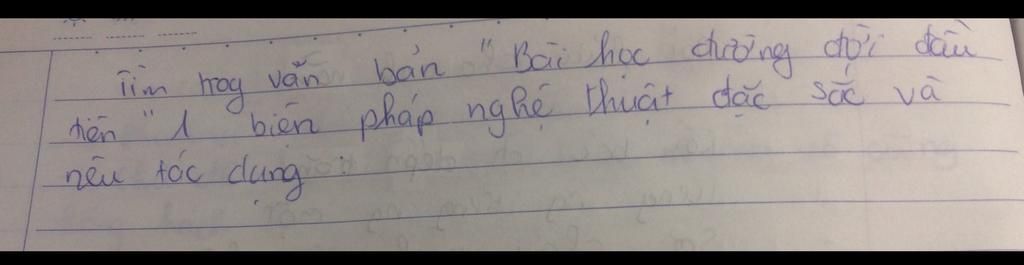 Tìm trog văn bản "Bài học đường đời đầu
tiên" 1 biện pháp nghệ thuật đặc sắc và
nêu tác dụng